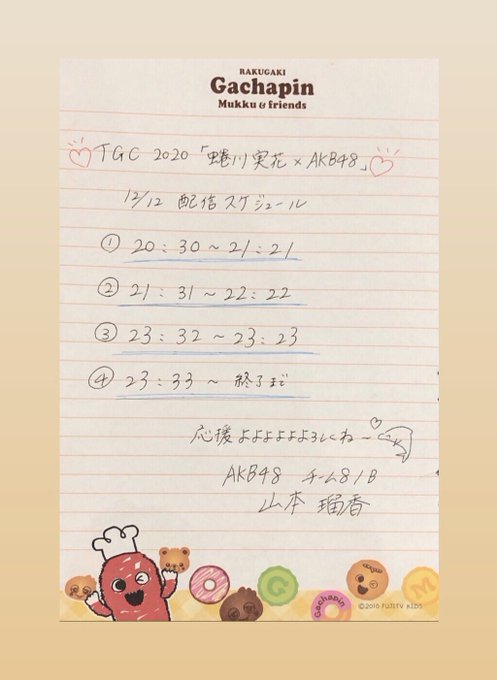 RAKUGAKI
Gachapin
Mukku & friends
TGC 2020「蜷川実花×AKB48」
12/12 配信スケジュール
① 20:30～21:21
② 21:31～22:22
③ 23:32～23:23
④ 23:33～終了まで
応援よよよよよよろしくねー
AKB48 チーム8/B
山本 瑠香
G
Gachapin
M
©2010 FUJITV KIDS